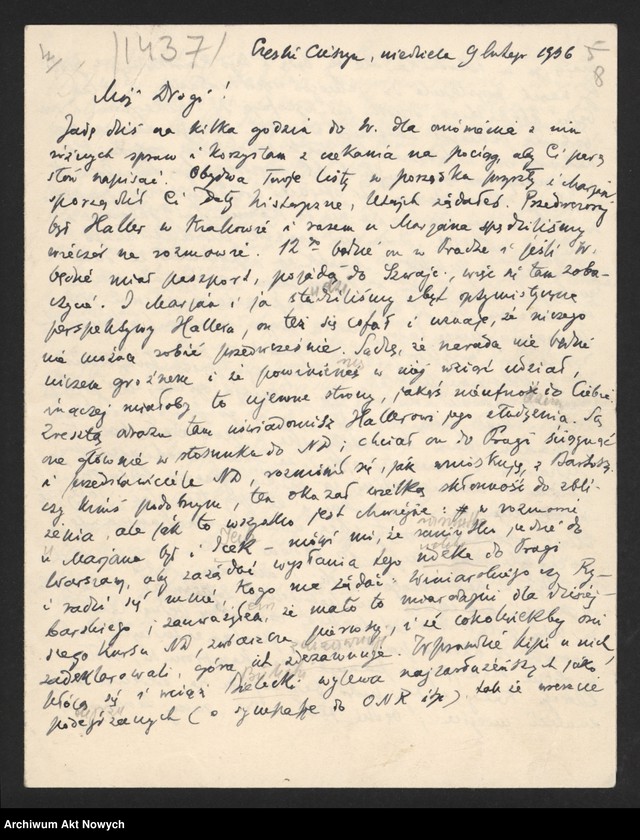 /1437/ Czeski Cieszyn, niedziela 9 lutego 1936 5
8
Mój Drogi!
Jadę dziś na kilka godzin do W. dla omówienia z nim
różnych spraw i korzystam z czekania na pociąg, aby Ci parę
słów napisać. Obydwa Twoje listy w porządku przyszły i Marjan
sporządził Ci Daty historyczne, których żądałeś. Przedwczoraj
był Haller w Krakowie i razem u Marjana spędziliśmy
wieczór na rozmowie. 12go będzie on w Pradze i jeśli W.
będzie miał paszport, pojadą do Szwajc., więc się tam zoba-
czycie. I Marjan i ja studziliśmy zbyt optymistyczne
perspektywy Hallera, on też się cofał i uznaje, że niczego
nie można robić przedwcześnie. Sądzę, że narada nie będzie
niczem groźnem i że powinieneś w niej wziąć udział,
inaczej miałoby to ujemne strony, jakąś nieufność do Ciebie.
Zresztą odrazu tam uświadomisz Hallerowi jego złudzenia. Są
one głównie w stosunku do ND; chciał on do Pragi ściągnąć
i przedstawiciela ND, rozmówił się, jak wnioskuję, z Bartosz.
czy kimś podobnym, ten okazał wielką skłonność do zbli-
żenia, ale jak to wszystko jest chwiejne: w rozmowie
u Marjana był i Jcek – mówi mi, że jedzie do
Warszawy, aby zażądać wysłania tego do Pragi
i radzi się mnie, kogo ma żądać: Winiarskiego czy Ry-
barskiego; zauważyłem, że mało to miarodajni dla dzisiej-
szego kursu ND, zwłaszcza pierwszy, i że cokolwiekby oni
zadeklarowali, góra ich zdezawuuje. Wprawdzie kipi u nich,
kłócą się i wciąż Bielecki wylewa najzasłużeńszych jako
podejrzanych (o sympatje do ONR itp) tak że wreszcie
Archiwum Akt Nowych